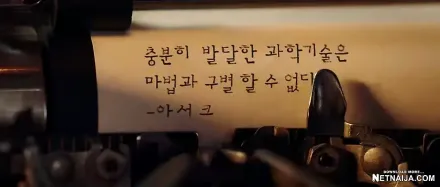 충분히 발달한 과학기술은
마법과 구별 할 수 없다
-아서 크
DOWNLOAD MORE...
NETNAIJA.COM